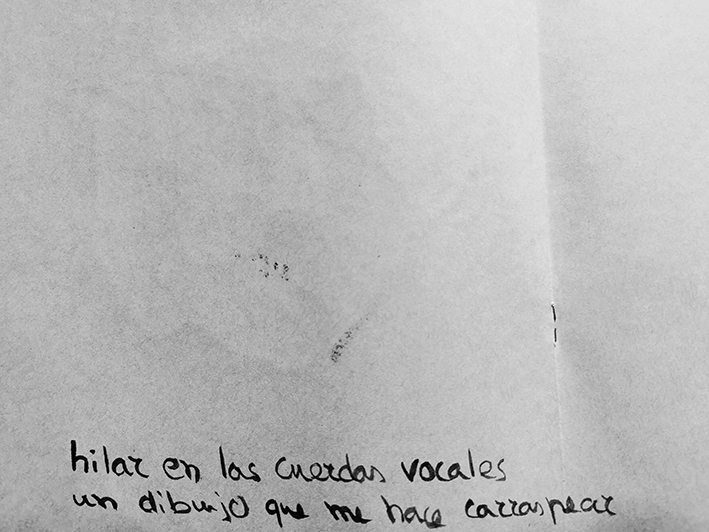 hilar en las cuerdas vocales
un dibujo que me hace carraspear